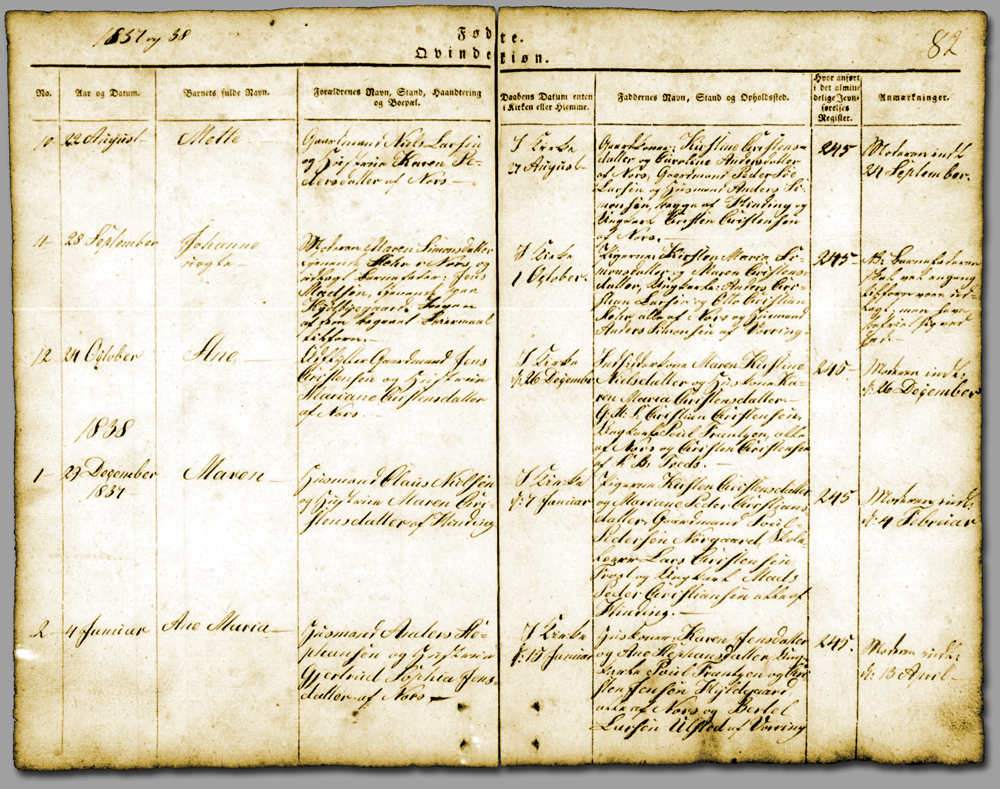 1837 og 38
Fødte.
Qvindekiøn.
82
No.
Aar og Datum.
Barnets fulde Navn.
Forældrenes Navn, Stand, Haandtering
og Boepæl.
Daabens Datum enten
i Kirken eller Hiemme.
Faddernes Navn, Stand og Opholdssted.
Hvor anført
i det almin-
delige Jevn-
førelses
Register.
Anmærkninger.
10
22 August
Mette
Gaardmand Niels Larsen
og Hustrue Karen Pe-
dersdatter af Nors
I Kirke
27 August
Gaardkone Kirstine Christens-
datter og Caroline Andersdatter
af Nors, Gaardmand Peder
Larsen og Huusmand Anders Si-
monsen, begge af Hinding og
Ungkarl Christen Christensen
af Nors.
245
Moderen indl.
24 September.
11
28 September
Johanne
uægte
Moderen Maren Simonsdatter
Nors og
udlagt Barnefader: Jens
Madsen,
I Kirke
1 October.
Pigerne Kirsten Maria Si-
monsdatter og Maren Christens-
datter, Ungkarle Anders Chri-
stian Larsen og Otto Christian
alle af Nors og Huusmand
Anders Simonsen af Vorring
245
12
24 October
Ane
Gaardmand Jens
Christensen og Hustrue
Mariane Christensdatter
af Nors.
I Kirke
d. 26 December
Maren Kirstine
Nielsdatter og Huuskone Ka-
ren Maria Christensdatter
Christian Christensen,
Ungkarl Poul Frantzen, alle
af Nors og Christen Christensen
af
245
Moderen indl.
d. 26 December
1838
1
29 December
1837
Maren
Huusmand Claus Nielsen
og Hustrue Maren Chri-
stensdatter af Hinding
I Kirke
d. 7 Januar
Pigerne Kirsten Christensdatter
og Mariane Peder Christians-
datter, Gaardmand Poul
Pedersen Nørgaard, Skole-
lærer Lars Christensen
Frost og Ungkarl Mads
Peder Christiansen alle af
Hinding.
245
Moderen indl.
d. 4 Februar
2
4 Januar
Ane Maria
Huusmand Anders Ste-
phansen og Hustrue
Gjertrud Sophia Jens-
datter af Nors
I Kirke
d. 15 Januar
Huuskoner Karen Jensdatter
og Ane Stephansdatter, Ung-
karle Poul Frantzen og Chri-
sten Jensen Hyldgaard
alle af Nors og Bertel
Larsen Ulsted af Vorring
245
Moderen indl.
d. 15 April